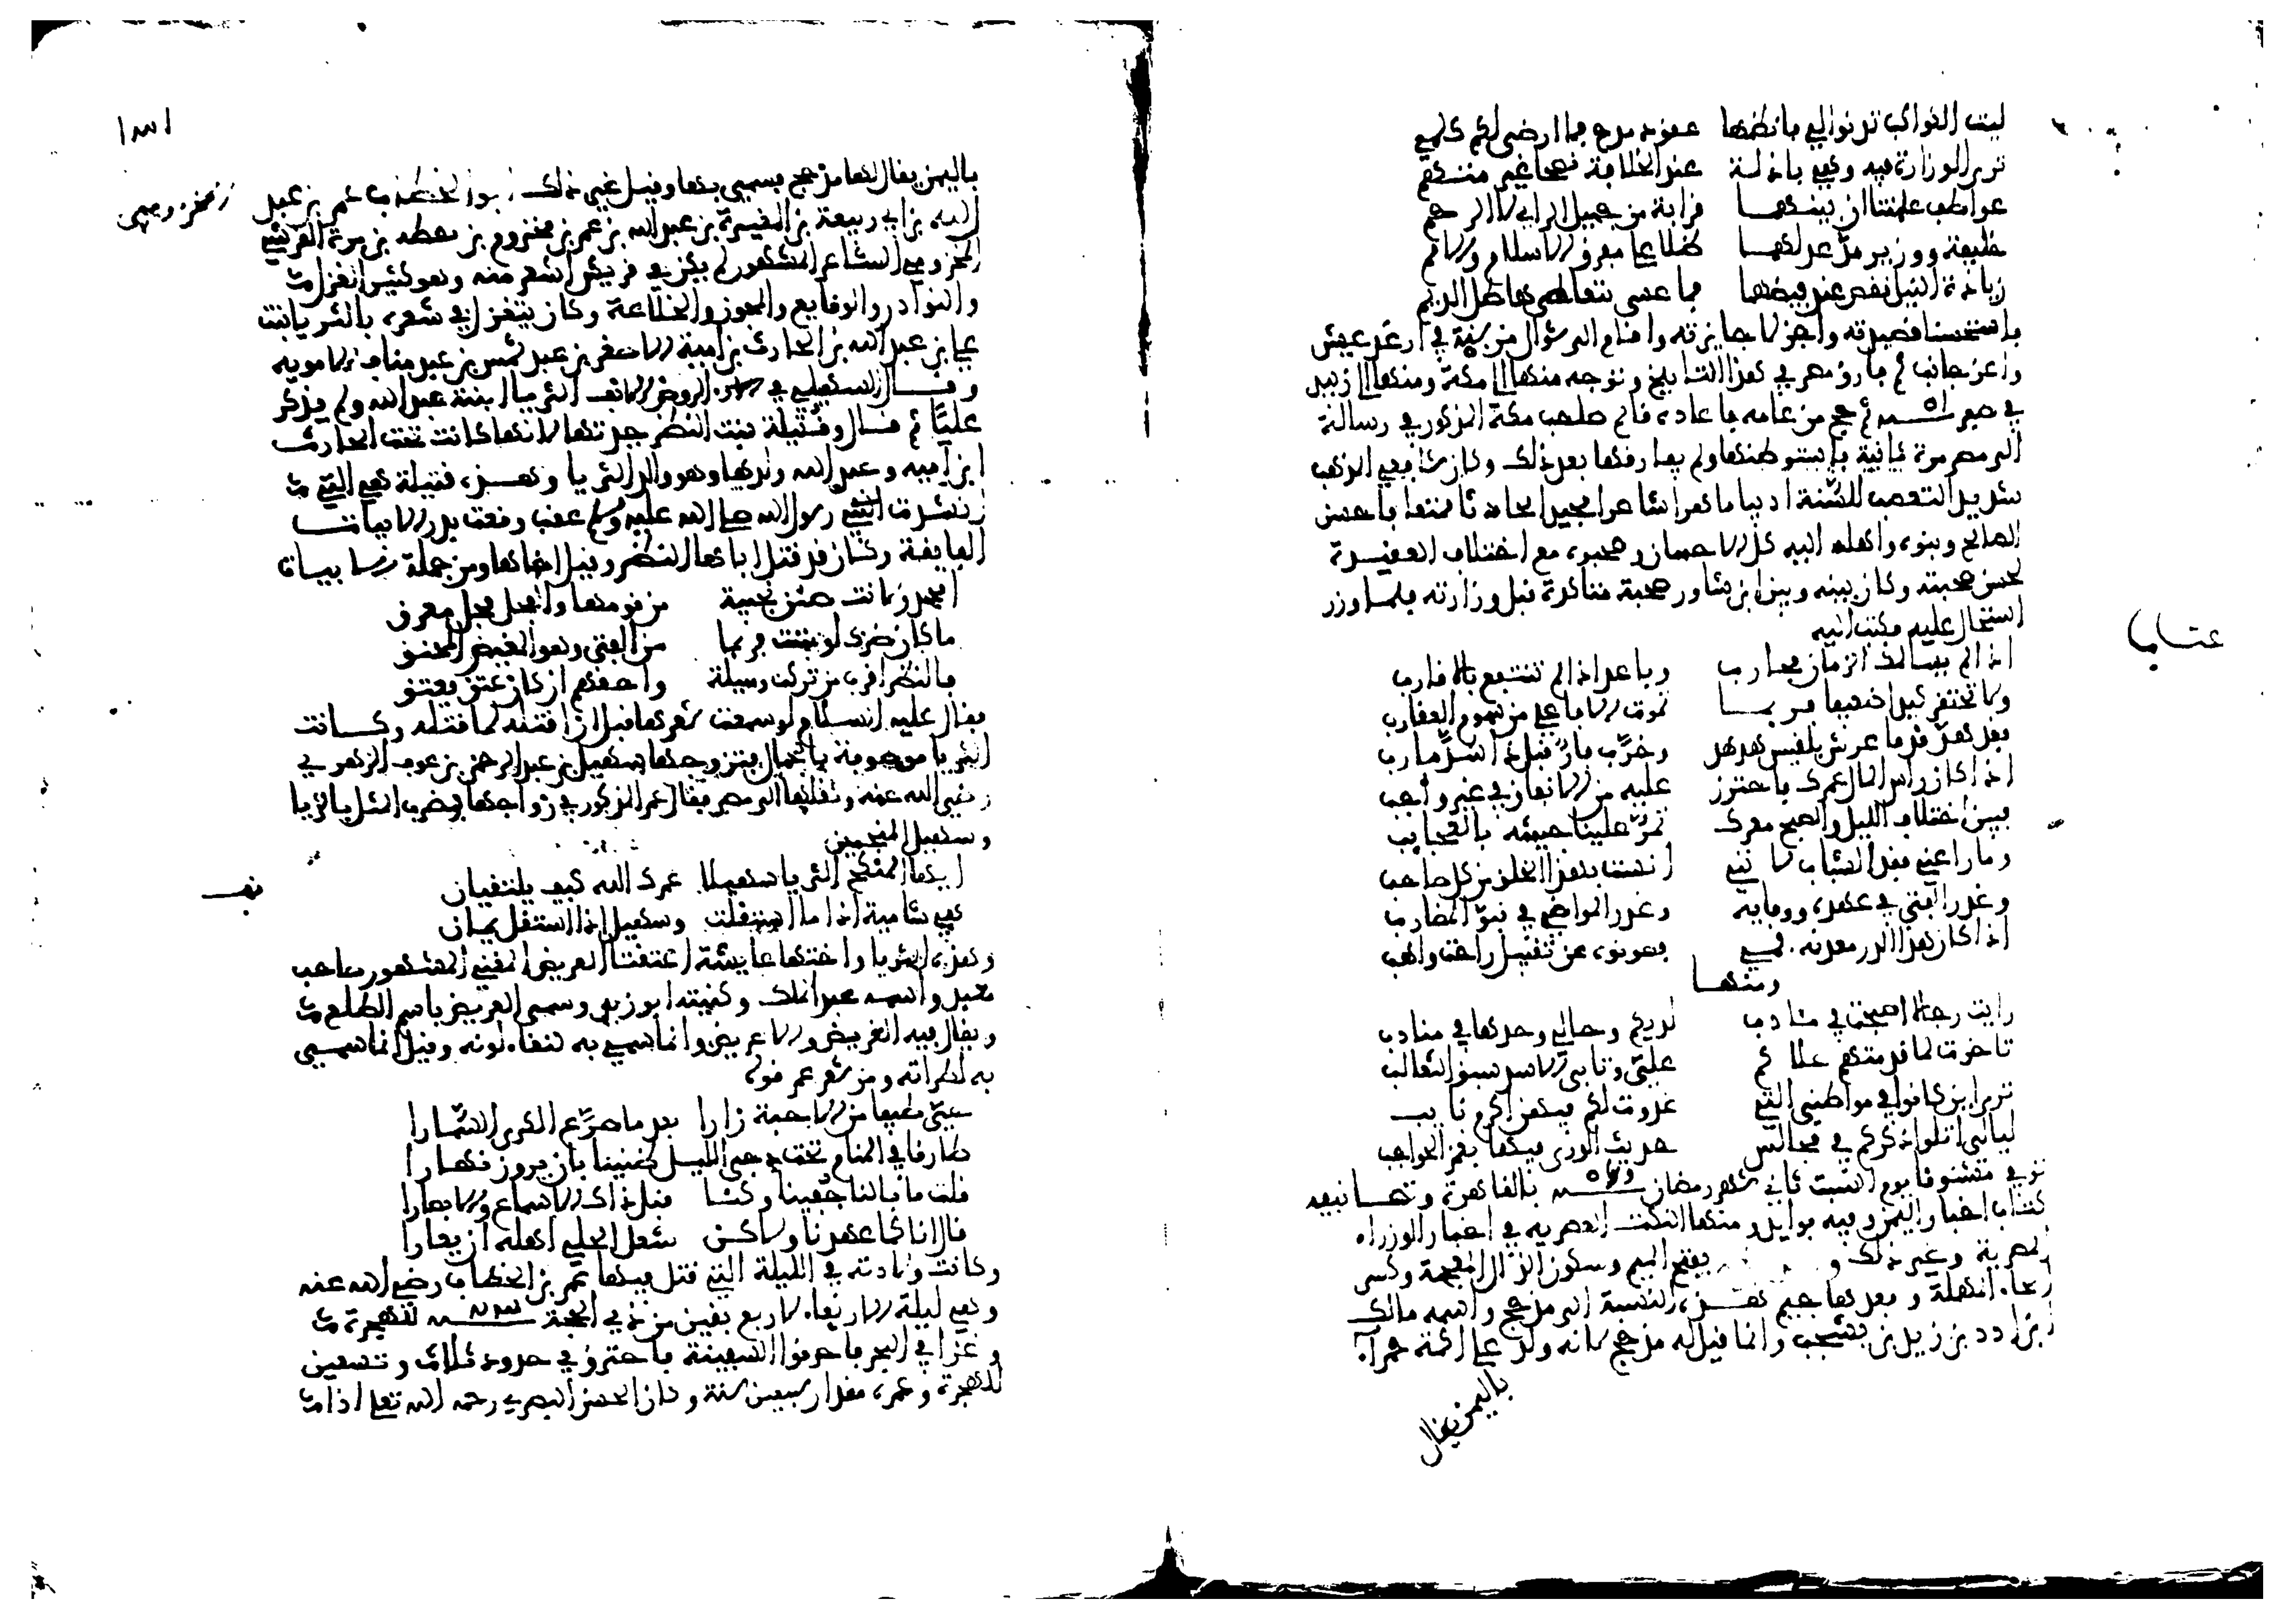 ليت الكواكب تدنوا لي فانظمها عقود مدح فما ارضى لكم كلمي
ترى الوزارة فيه وهي باذلة عند الخلافة نصحا غير متهم
عواطف علمتنا ان بينهما قرابة من جميل الراي لا الرحم
خليفة ووزير مد عدلهما ظلا على مفرق الاسلام والامم
زيادة النيل نقص عند فيضهما فما عسى تتعاطى هاطل الديم
فاستحسنا قصيدته واجزلا جايزته واقام الى شوال من سنة في ارغد عيش
واعز جانب ثم فارق مصر في هذا التاريخ وتوجه منها الى مكة ومنها الى زبيد
في صفر سنة ثم حج من عامه فاعاده قاسم صاحب مكة المذكور في رسالة
الى مصر مرة ثانية فاستوطنها ولم يفارقها بعد ذلك وكان شافعي المذهب
شديد التعصب للسنة اديبا ماهرا شاعرا مجيدا محادثا ممتعا فاحسن
الصالح وبنوه واهله اليه كل الاحسان وصحبوه مع اختلاف العقيدة
لحسن صحبته وكان بينه وبين ابن شاور صحبة متاكدة قبل وزارته فلما وزر
استحال عليه فكتب اليه
عتابا
اذا لم يسالمك الزمان فحارب وباعد اذا لم تنتفع بالاقارب
ولا تحتقر كيد اضعيفا فربما تموت الافاعي من سموم العقارب
فقد هد قدما عرش بلقيس هدهد وخرب فار قبل ذا سد مارب
اذا كان راس المال عمرك فاحترز عليه من الانفاق في غير واجب
فبين اختلاف الليل والصبح معرك تمر علينا جيشه بالعجايب
وما راعني غدر الشباب لانني انست بهذا الخلق من كل صاحب
وغدر الفتى في عهده ووفايه وغدر المواضي في نبو المضارب
اذا كان هذا الدر معدنه فمي فصونوه عن تقبيل راحة واهب
ومنها
رايت رجالا اصبحت في مادب لديكم وحالي وحدها في منادب
تاخرت لما قدمتهم علاكم علي وتابى الاسد سبق الثعالب
ترى اين كانوا في مواطني التي غدوت لكم فيهن اكرم نايب
ليالي اتلوا ذكركم في مجالس حديث الورى فيها بغمز الحواجب
توفي مشنوقا يوم السبت ثاني شهر رمضان سنة بالقاهرة وتصانيفه
كتاب اخبار اليمن وفيه فوايد ومنها النكت العصرية في اخبار الوزراء
المصرية وغير ذلك و بفتح الميم وسكون الذال المعجمة وكسر
الحاء المهملة وبعدها جيم هذه النسبة الى مذحج واسمه مالك
ابن ادد بن زيد بن يشجب وانما قيل له مذحج لانه ولد على اكمة حمراء
باليمن يقال
باليمن يقال لها مذحج فسمي بها وقيل غير ذلك ابو الخطاب عمر بن عبد
المخزومي
الله بن ابي ربيعة بن المغيرة بن عبد الله بن عمر بن مخزوم بن يقظه بن مرة القرشي
المخزومي الشاعر المشهور لم يكن في قريش اشعر منه وهو كثير الغزل
والنوادر والوقايع والمجون والخلاعة وكان يتغزل في شعره بالثريا بنت
علي بن عبد الله بن الحارث بن امية الاصغر بن عبد شمس بن عبد مناف الاموية
وقال السهيلي في الروض الانف الثريا ابنة عبد الله ولم يذكر
عليا ثم قال وقتيلة بنت النضر جدتها لانها كانت تحت الحارث
ابن امية وعبد الله ولدها وهو والد الثريا وهذه قتيلة هي التي
انشدت النبي رسول الله صلى الله عليه وسلم عقب وقعة بدر الابيات
القافية وكان قد قتل اباها النضر وقيل اخاها ومن جملة الابيات
امحمد ولانت ضنو نجيبة من قومها والفحل فحل معرق
ما كان ضرك لو مننت فربما من الفتى وهو المغيض المحنق
فالنضر اقرب من تركت وسيلة واحقهم ان كان عتق يعتق
فقال عليه السلام لو سمعت شعرها قبل ان اقتله لما قتلته وكانت
الثريا موصوفة بالجمال فتزوجها سهيل بن عبد الرحمن بن عوف الزهري
رضي الله عنه ونقلها الى مصر فقال عمر المذكور في زواجها يضرب المثل بالثريا
وسهيل النجمين
ايها المنكح الثريا سهيلا عمرك الله كيف يلتقيان
هي شامية اذا ما استقلت وسهيل اذا استقل يمان
وهذه الثريا واختها عايشة اعتقتا الغريض المغني المشهور صاحب
معبد واسمه عبد الملك وكنيته ابو زيد وسمي الغريض باسم الطلع
ويقال فيه الغريض والاغريض وانما سمي به لنقاء لونه وقيل انما سمي
به لطراته ومن شعر عمر قوله
حي طيفا من الاحبة زارا بعد ما صرع الكرى السمارا
طارقا في المنام تحت دجى الليل ضنينا بان يزور نهارا
قلت ما بالنا جفينا وكنا قبل ذاك الاسماع والابصارا
قال انا كما عهدت ولاكن شغل الحلي اهله ان يعارا
وكانت ولادته في الليلة التي قتل فيها عمر بن الخطاب رضي الله عنه
وهي ليلة الاربعاء لاربع بقين من ذي الحجة سنة للهجرة
وغزا في البحر فاحرقوا السفينة فاحترق في حدود ثلاث وتسعين
للهجرة وعمره مقدار سبعين سنة وكان الحسن البصري رحمه الله تعلى اذا